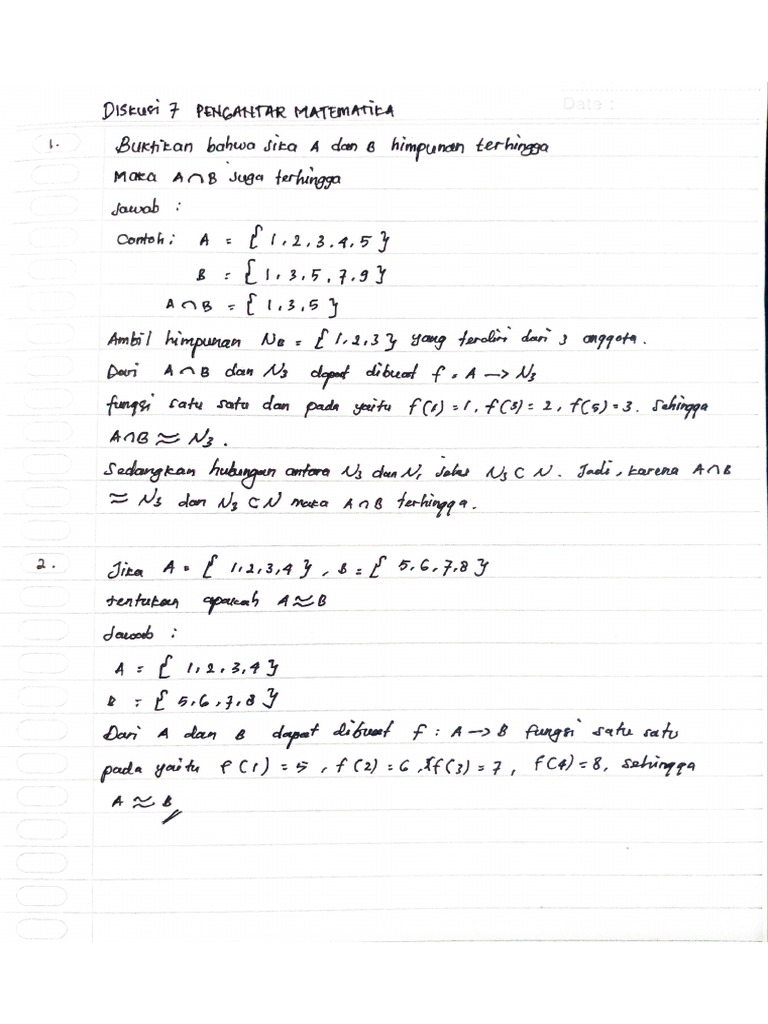 Date :
DISKUSI 7 PENGANTAR MATEMATIKA
1. Buktikan bahwa jika A dan B himpunan terhingga
Maka A ∩ B juga terhingga
Jawab :
Contoh : A = { 1, 2, 3, 4, 5 }
B = { 1, 3, 5, 7, 9 }
A ∩ B = { 1, 3, 5 }
Ambil himpunan N₃ = { 1, 2, 3 } yang terdiri dari 3 anggota.
Dari A ∩ B dan N₃ dapat dibuat f : A → N₃
fungsi satu satu dan pada yaitu f(1) = 1, f(3) = 2, f(5) = 3. Sehingga
A∩B ≈ N₃.
Sedangkan hubungan antara N₃ dan N, jelas N₃ ⊂ N. Jadi, karena A∩B
≈ N₃ dan N₃ ⊂ N maka A ∩ B terhingga.
2. Jika A = { 1, 2, 3, 4 }, B = { 5, 6, 7, 8 }
tentukan apakah A ≈ B
Jawab :
A = { 1, 2, 3, 4 }
B = { 5, 6, 7, 8 }
Dari A dan B dapat dibuat f : A → B fungsi satu satu
pada yaitu f(1) = 5, f(2) = 6, f(3) = 7, f(4) = 8, sehingga
A ≈ B